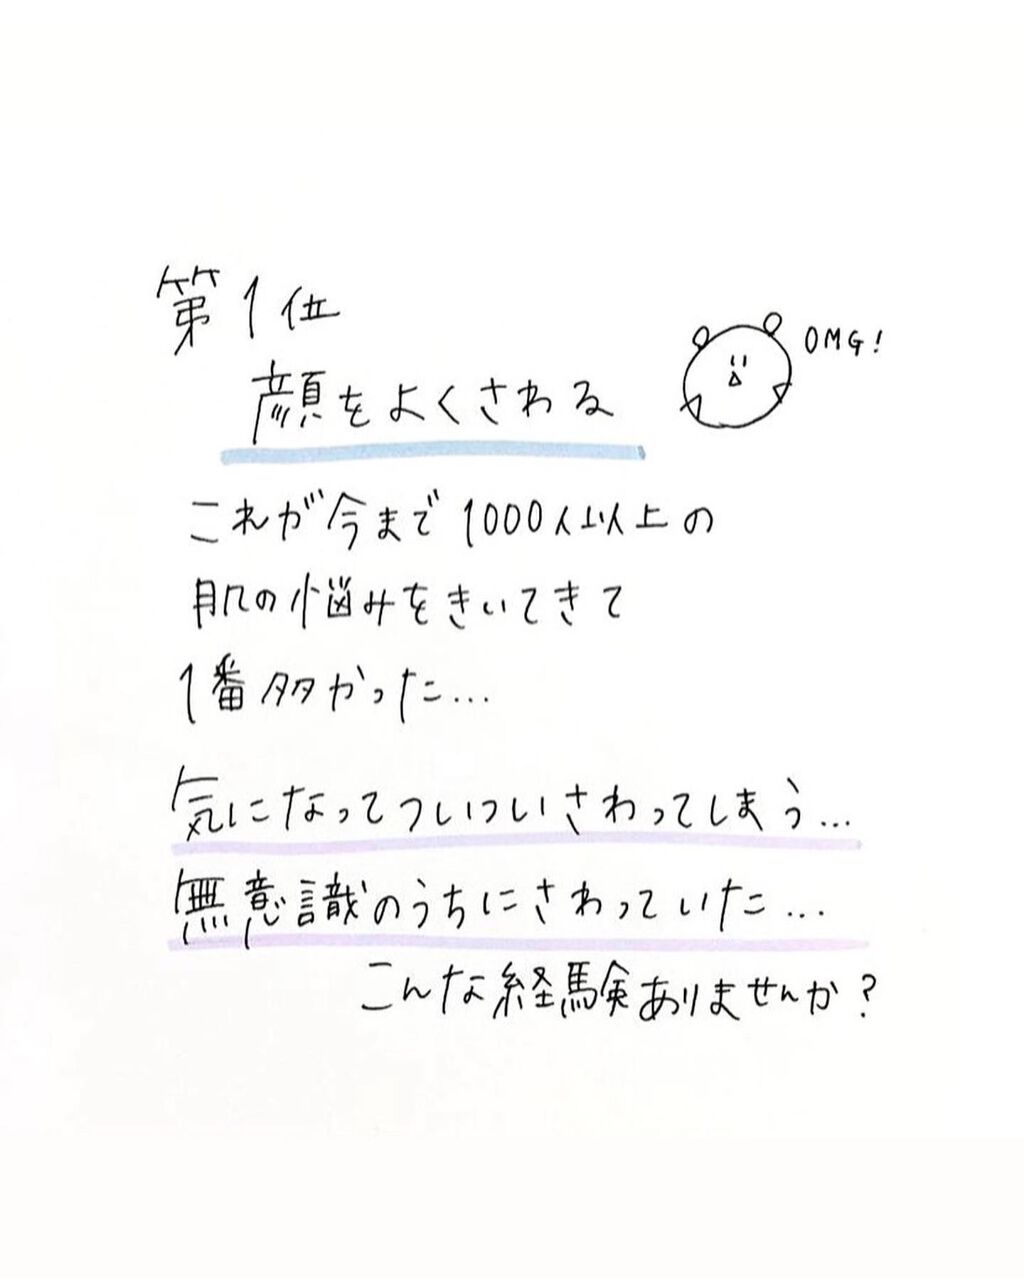 第1位
OMG!
顔をよくさわる
これが今まで1000人以上の
肌の悩みをきいてきて
1番多かった...
気になってついついさわってしまう...
無意識のうちにさわっていた...
こんな経験ありませんか?